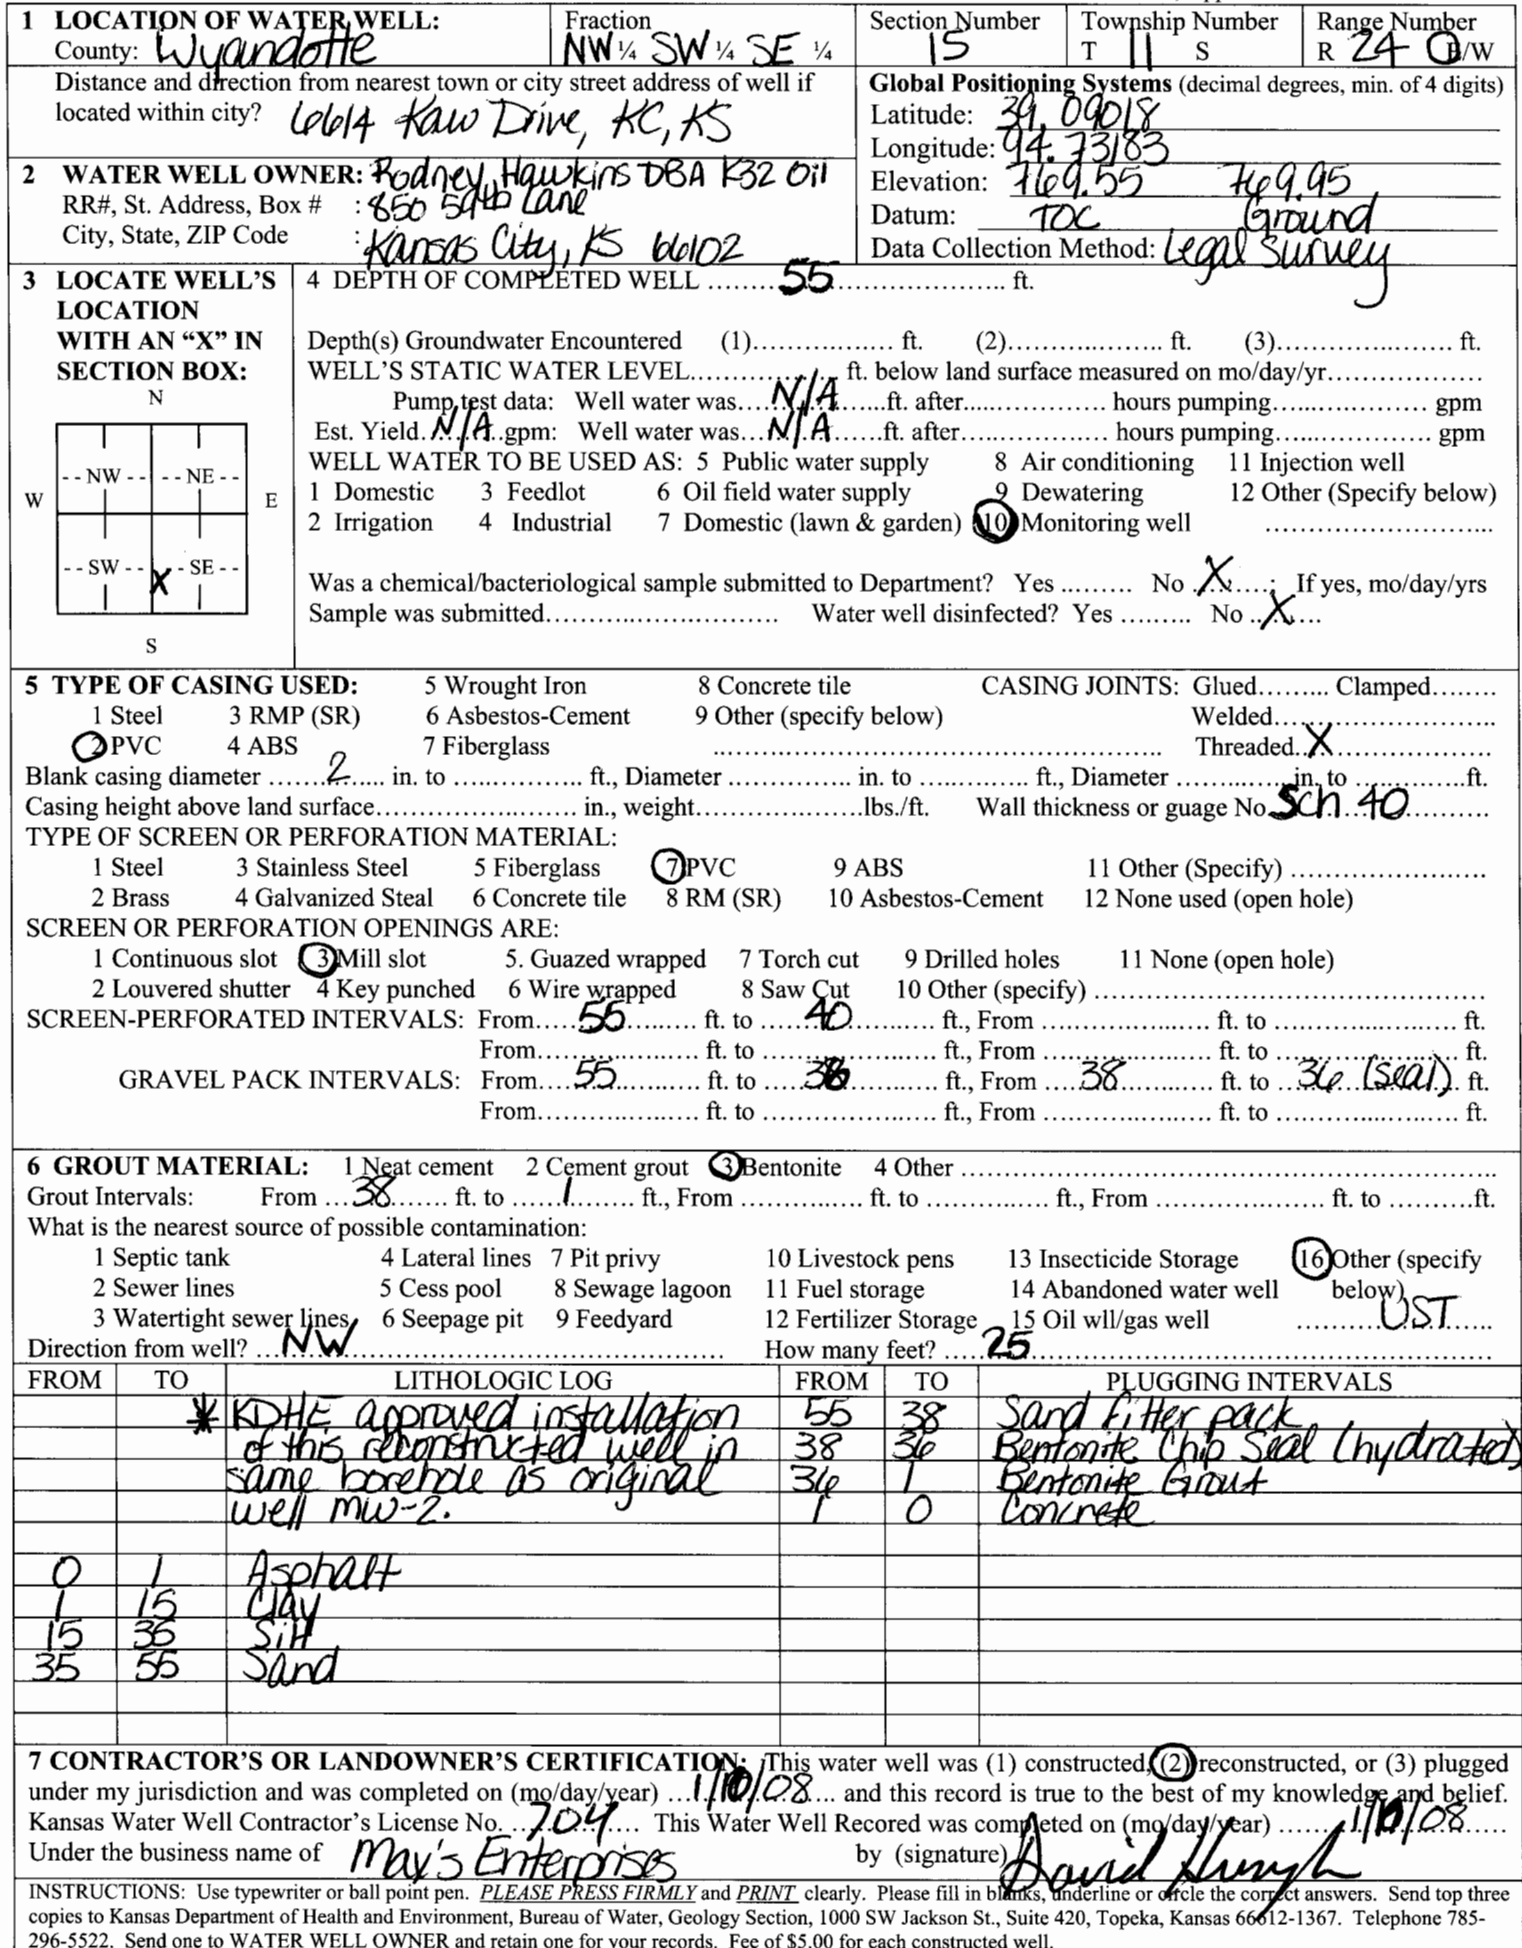 1 LOCATION OF WATER WELL: Fraction Section Number Township Number Range Number
County: Wyandotte NW ¼ SW ¼ SE ¼ 15 T 11 S R 24 E/W
Distance and direction from nearest town or city street address of well if
located within city? 6614 Kaw Drive, KC, KS
Global Positioning Systems (decimal degrees, min. of 4 digits)
Latitude: 39.09018
Longitude: 94.73183
2 WATER WELL OWNER: Rodney Hawkins DBA K32 Oil
Elevation: 769.55 769.95
RR#, St. Address, Box # : 850 59th Lane
Datum: TOC Ground
City, State, ZIP Code : Kansas City, KS 66102
Data Collection Method: Legal Survey
3 LOCATE WELL'S
LOCATION
WITH AN “X” IN
SECTION BOX:
N
--NW-- --NE--
W E
--SW-- X --SE--
S
4 DEPTH OF COMPLETED WELL ........55........................ ft.
Depth(s) Groundwater Encountered (1).................. ft. (2)................... ft. (3)..................... ft.
WELL'S STATIC WATER LEVEL.................... ft. below land surface measured on mo/day/yr....................
Pump test data: Well water was....N/A.......ft. after.................... hours pumping..................... gpm
Est. Yield..N/A..gpm: Well water was...N/A.......ft. after.................... hours pumping..................... gpm
WELL WATER TO BE USED AS: 5 Public water supply 8 Air conditioning 11 Injection well
1 Domestic 3 Feedlot 6 Oil field water supply 9 Dewatering 12 Other (Specify below)
2 Irrigation 4 Industrial 7 Domestic (lawn & garden) 10 Monitoring well ..............................
Was a chemical/bacteriological sample submitted to Department? Yes ......... No ..X....; If yes, mo/day/yrs
Sample was submitted................................ Water well disinfected? Yes ......... No ..X....
5 TYPE OF CASING USED: 5 Wrought Iron 8 Concrete tile CASING JOINTS: Glued......... Clamped........
1 Steel 3 RMP (SR) 6 Asbestos-Cement 9 Other (specify below) Welded..............................
2 PVC 4 ABS 7 Fiberglass .......................................................... Threaded..X......................
Blank casing diameter .......2...... in. to .................. ft., Diameter ................... in. to .................. ft., Diameter .................in. to ................ft.
Casing height above land surface............................ in., weight.......................lbs./ft. Wall thickness or guage No. Sch 40............
TYPE OF SCREEN OR PERFORATION MATERIAL:
1 Steel 3 Stainless Steel 5 Fiberglass 7 PVC 9 ABS 11 Other (Specify) ...........................
2 Brass 4 Galvanized Steal 6 Concrete tile 8 RM (SR) 10 Asbestos-Cement 12 None used (open hole)
SCREEN OR PERFORATION OPENINGS ARE:
1 Continuous slot 3 Mill slot 5. Guazed wrapped 7 Torch cut 9 Drilled holes 11 None (open hole)
2 Louvered shutter 4 Key punched 6 Wire wrapped 8 Saw Cut 10 Other (specify) ......................................................
SCREEN-PERFORATED INTERVALS: From.....55.......... ft. to .....40............ ft., From ........................ ft. to ........................ ft.
From....................... ft. to ........................ ft., From ........................ ft. to ........................ ft.
GRAVEL PACK INTERVALS: From.....55.......... ft. to .....38............ ft., From .....38............ ft. to ..36 (seal). ft.
From....................... ft. to ........................ ft., From ........................ ft. to ........................ ft.
6 GROUT MATERIAL: 1 Neat cement 2 Cement grout 3 Bentonite 4 Other ..........................................................................
Grout Intervals: From ...38....... ft. to ......1......... ft., From ....................... ft. to ....................... ft., From ....................... ft. to ...........ft.
What is the nearest source of possible contamination:
1 Septic tank 4 Lateral lines 7 Pit privy 10 Livestock pens 13 Insecticide Storage 16 Other (specify
2 Sewer lines 5 Cess pool 8 Sewage lagoon 11 Fuel storage 14 Abandoned water well below)
3 Watertight sewer lines 6 Seepage pit 9 Feedyard 12 Fertilizer Storage 15 Oil wll/gas well ..........UST......
Direction from well? ...NW.................................................. How many feet? .....25..........................................................
FROM TO LITHOLOGIC LOG FROM TO PLUGGING INTERVALS
* KDHE approved installation 55 38 Sand Filter pack
of this reconstructed well in 38 36 Bentonite Chip Seal (hydrated)
same borehole as original 36 1 Bentonite Grout
well MW-2. 1 0 Concrete
0 1 Asphalt
1 15 Clay
15 35 Silt
35 55 Sand
7 CONTRACTOR'S OR LANDOWNER'S CERTIFICATION: This water well was (1) constructed, (2) reconstructed, or (3) plugged
under my jurisdiction and was completed on (mo/day/year) ...1/10/08.... and this record is true to the best of my knowledge and belief.
Kansas Water Well Contractor's License No. ..704..... This Water Well Recored was completed on (mo/day/year) .......1/10/08......
Under the business name of Max's Enterprises by (signature) David
INSTRUCTIONS: Use typewriter or ball point pen. PLEASE PRESS FIRMLY and PRINT clearly. Please fill in blanks, underline or circle the correct answers. Send top three
copies to Kansas Department of Health and Environment, Bureau of Water, Geology Section, 1000 SW Jackson St., Suite 420, Topeka, Kansas 66612-1367. Telephone 785-
296-5522. Send one to WATER WELL OWNER and retain one for your records. Fee of $5.00 for each constructed well.